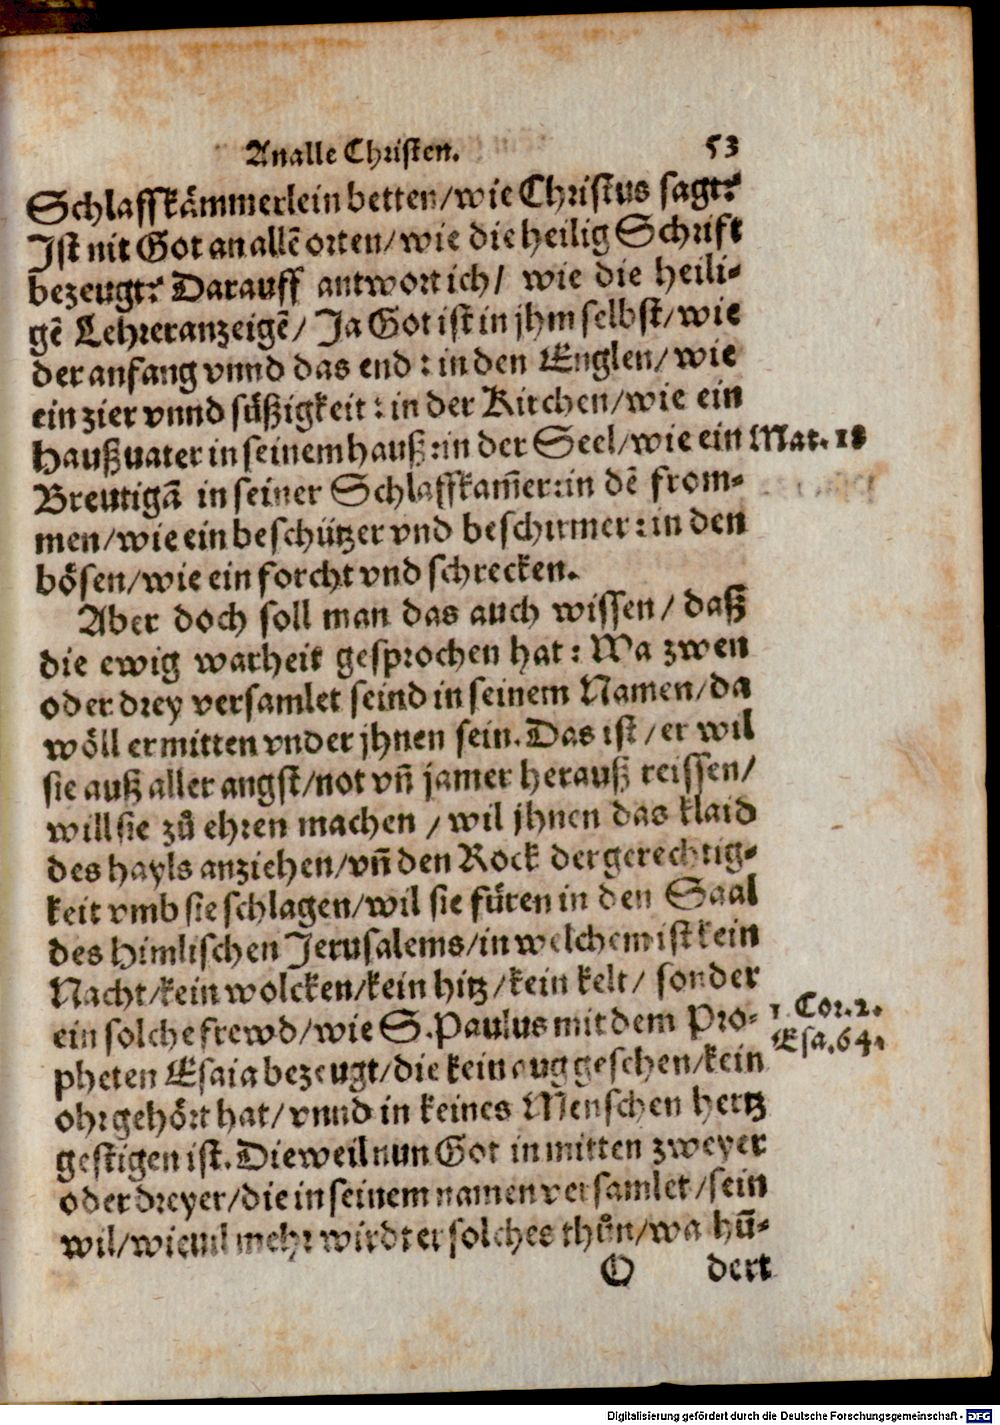 An alle Christen. 53
Schlaffkämmerlein betten/wie Christus sagt?
Ist nit Got an allē orten/wie die heilig Schrift
bezeugt? Darauff antwort ich/ wie die heili-
gē Lehrer anzeigē/ Ja Got ist in jhm selbst/wie
der anfang vnnd das end : in den Englen/ wie
ein zier vnnd süßigkeit : in der Kirchen/wie ein
Haußuater in seinem hauß :in der Seel/wie ein
Mat. 18
Breutigā in seiner Schlaffkam̄er:in dē from-
men/wie ein beschützer vnd beschirmer : in den
bösen/wie ein forcht vnd schrecken.
Aber doch soll man das auch wissen/ daß
die ewig warheit gesprochen hat : Wa zwen
oder drey versamlet seind in seinem Namen/da
wöll er mitten vnder jhnen sein. Das ist/er wil
sie auß aller angst/not vn̄ jamer herauß reissen/
will sie zů ehren machen / wil jhnen das klaid
des hayls anziehen/vn̄ den Rock der gerechtig-
keit vmb sie schlagen/wil sie füren in den Saal
des Himlischen Jerusalems/in welchem ist kein
Nacht/kein wolcken/kein hitz/kein kelt/ sonder
ein solche frewd/wie S. Paulus mit dem Pro-
1. Cor. 2.
Esa. 64.
pheten Esaia bezeugt/die kein aug gesehen/kein
ohr gehört hat/ vnnd in keines Menschen hertz
gestigen ist. Dieweil nun Got in mitten zweyer
oder dreyer/die in seinem namen versamlet/sein
wil/wieuil mehr wirdt er solches thůn/wa hū-
O dert
Digitalisierung gefördert durch die Deutsche Forschungsgemeinschaft - DFG